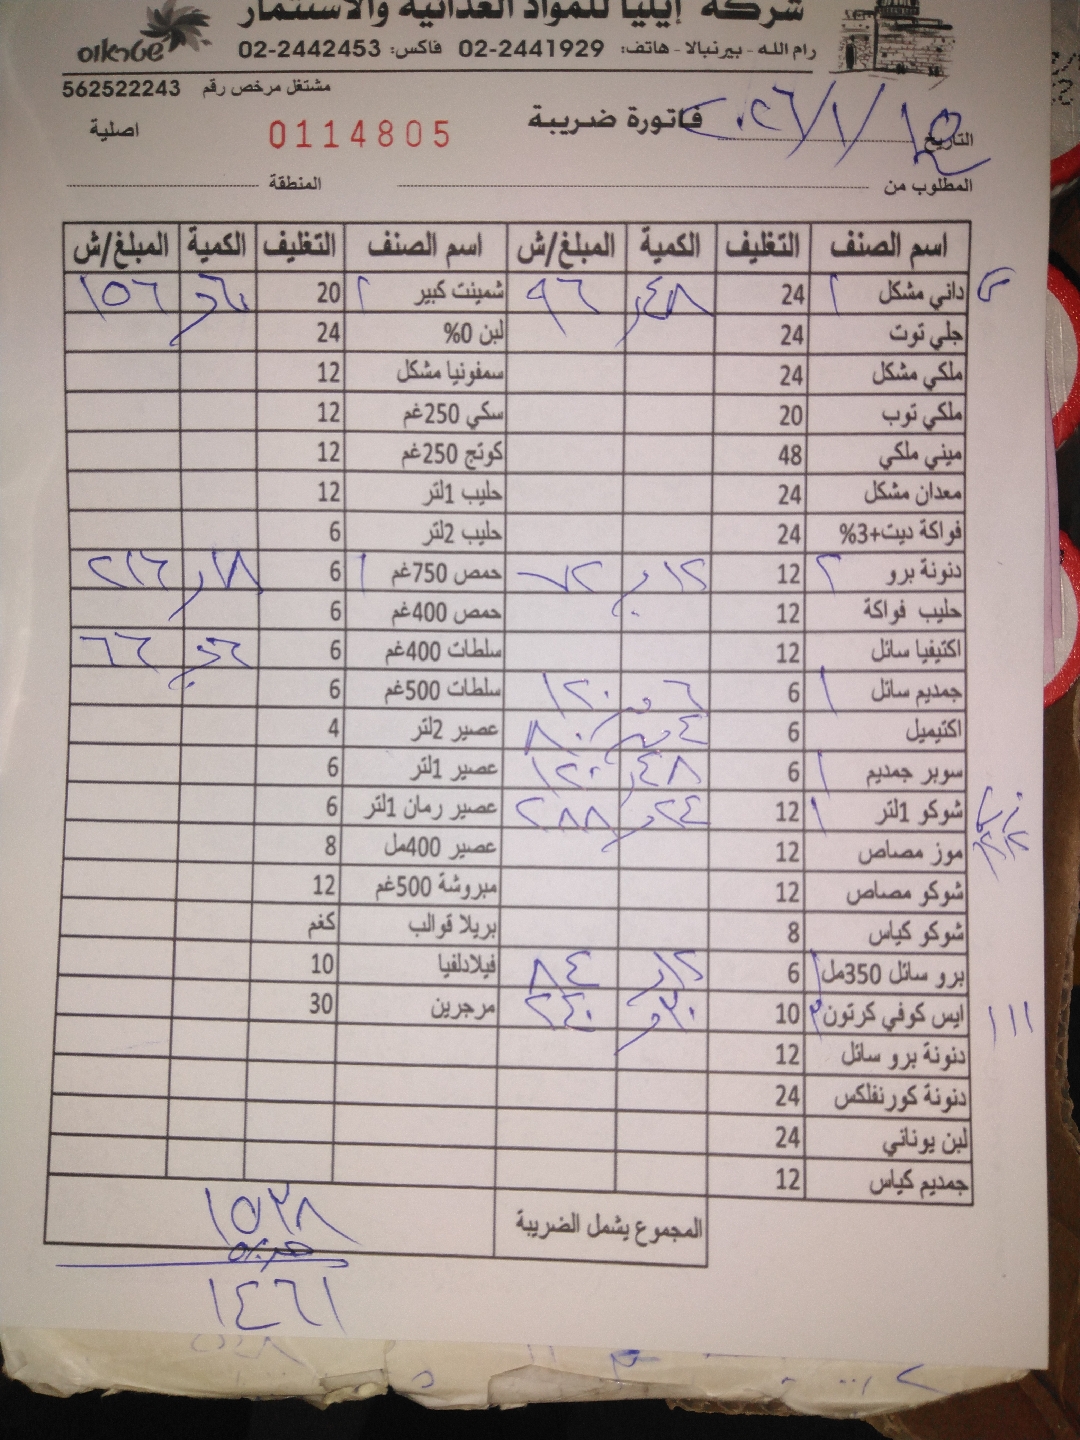 شركة إيليا للمواد الغذائية والاستثمار
שטראוס
رام الله - بيرنبالا - هاتف: 02-2441929 فاكس: 02-2442453
مشتغل مرخص رقم 562522243
فاتورة ضريبة
التاريخ ٢٠٢٦/١/١٥
0114805 اصلية
المطلوب من المنطقة
اسم الصنف التغليف الكمية المبلغ/ش اسم الصنف التغليف الكمية المبلغ/ش
داني مشكل ١ 24 ٤٨ ٩٦ شمينت كبير ١ 20 ١٥٦
جلي توت 24 لبن 0% 24
ملكي مشكل 24 سمفونيا مشكل 12
ملكي توب 20 سكي 250غم 12
ميني ملكي 48 كوتج 250غم 12
معدان مشكل 24 حليب 1لتر 12
فواكة ديت+3% 24 حليب 2لتر 6
دنونة برو ٢ 12 ١٢ ٧٢ حمص 750غم ١ 6 ١٨ ٢١٦
حليب فواكة 12 حمص 400غم 6
اكتيفيا سائل 12 سلطات 400غم 6 ٦٦
جمديم سائل ١ 6 ٦ ١٢٠ سلطات 500غم 6
اكتيميل 6 ٤ ٨٠ عصير 2لتر 4
سوبر جمديم ١ 6 ٤٨ ١٢٠ عصير 1لتر 6
شوكو 1لتر ١ 12 ٢٤ ٢٨٨ عصير رمان 1لتر 6
موز مصاص 12 عصير 400مل 8
شوكو مصاص 12 مبروشة 500غم 12
شوكو كياس 8 بريلا قوالب كغم
برو سائل 350مل ١ 6 ١٢ ٨٤ فيلادلفيا 10
ايس كوفي كرتون ٣ 10 ٣٠ ٢٤٠ مرجرين 30
١١١
دنونة برو سائل 12
دنونة كورنفلكس 24
لبن يوناني 24
جمديم كياس 12
المجموع يشمل الضريبة ١٥٣٨
١٤٦١